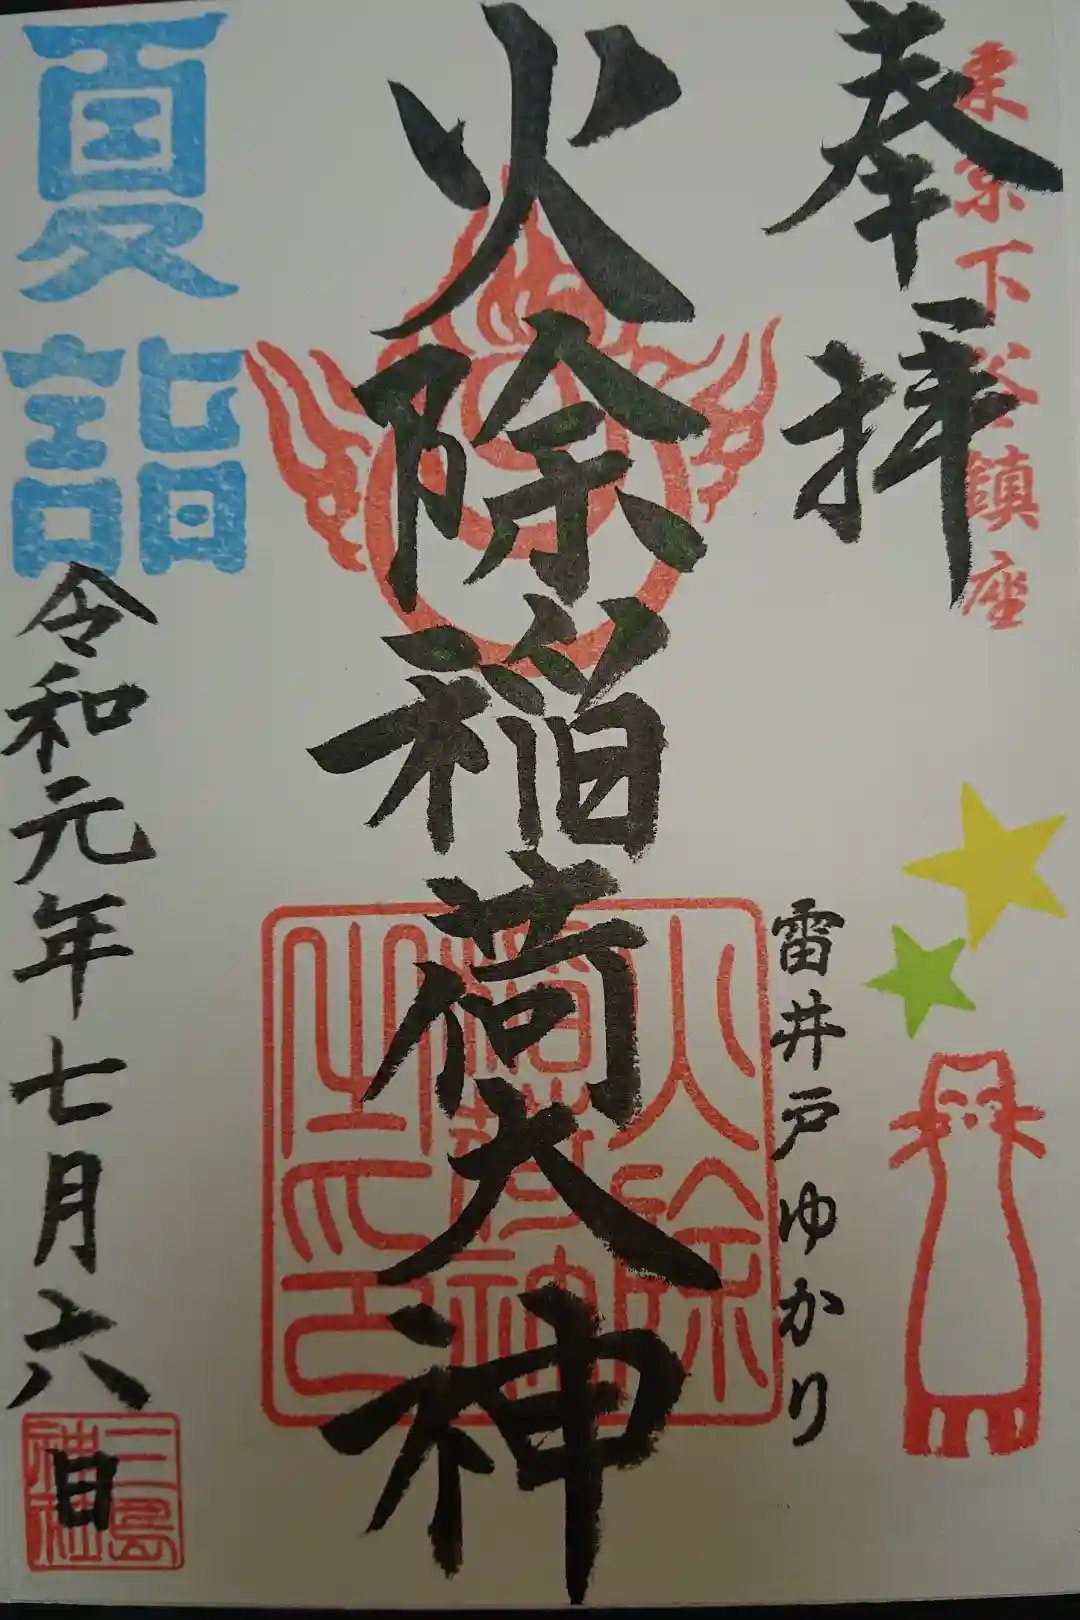 東京下谷鎮座
奉拝
雷井戸ゆかり
火除稲荷大神
火除稲荷大神之印
夏詣
令和元年七月六日
三島神社